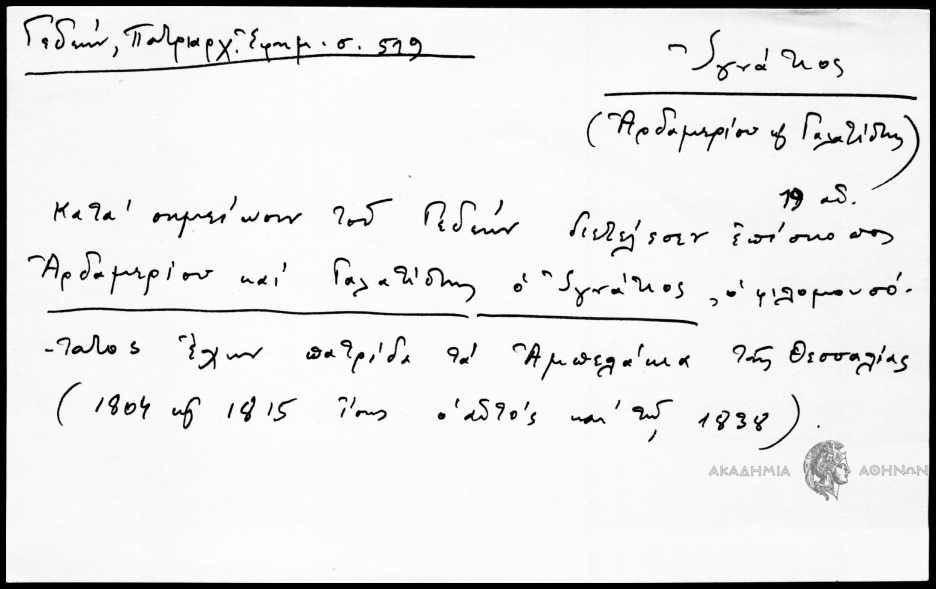 Γεδεών, Πατριαρχ. Ἐφημ. σ. 519
Ἰγνάτιος
(Ἀρδαμερίου ϗ Γαλατίστης)
19 αἰ.
Κατὰ σημείωσιν τοῦ Γεδεὼν διετέλεσεν ἐπίσκοπος
Ἀρδαμερίου καὶ Γαλατίστης ὁ Ἰγνάτιος, ὁ φιλομουσό-
-τατος ἔχων πατρίδα τὰ Ἀμπελάκια τῆς Θεσσαλίας
(1804 ϗ 1815 ἴσως ὁ αὐτὸς καὶ τῷ 1838).
ΑΚΑΔΗΜΙΑ ΑΘΗΝΩΝ